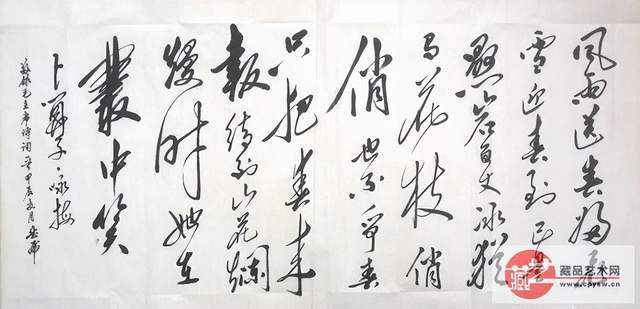 风雨送春归飞
雪迎春到已是
悬岩百丈冰犹
有花枝俏
俏也不争春
只把春来
报待到山花烂
熳时她在
叢中笑
卜算子·咏梅
敬录毛主席诗词 甲辰 月
藏品艺术网
www.cpysw.cn